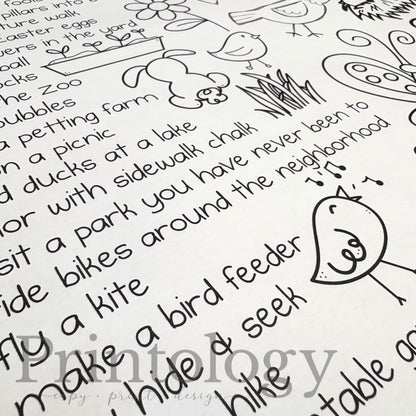 pillars into b
ure walk
aster eggs
ers in the yard
ball
ocks
he zoo
bubbles
a petting farm
on a picnic
d ducks at a lake
lor with sidewalk chalk
sit a park you have never been to
ide bikes around the neighborhood
fly a kite
make a bird feeder
hide & seek
hike
table ga
Printology
copy · print · design